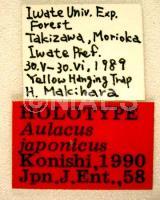 Iwate Univ. Exp.
Forest
Takizawa, Morioka
Iwate Pref.
30.V-30.VI, 1989
Yellow Hanging Trap
H. Makihara
©NIAES
HOLOTYPE
Aulacus
japonicus
Konishi, 1990
Jpn.J.Ent.,58